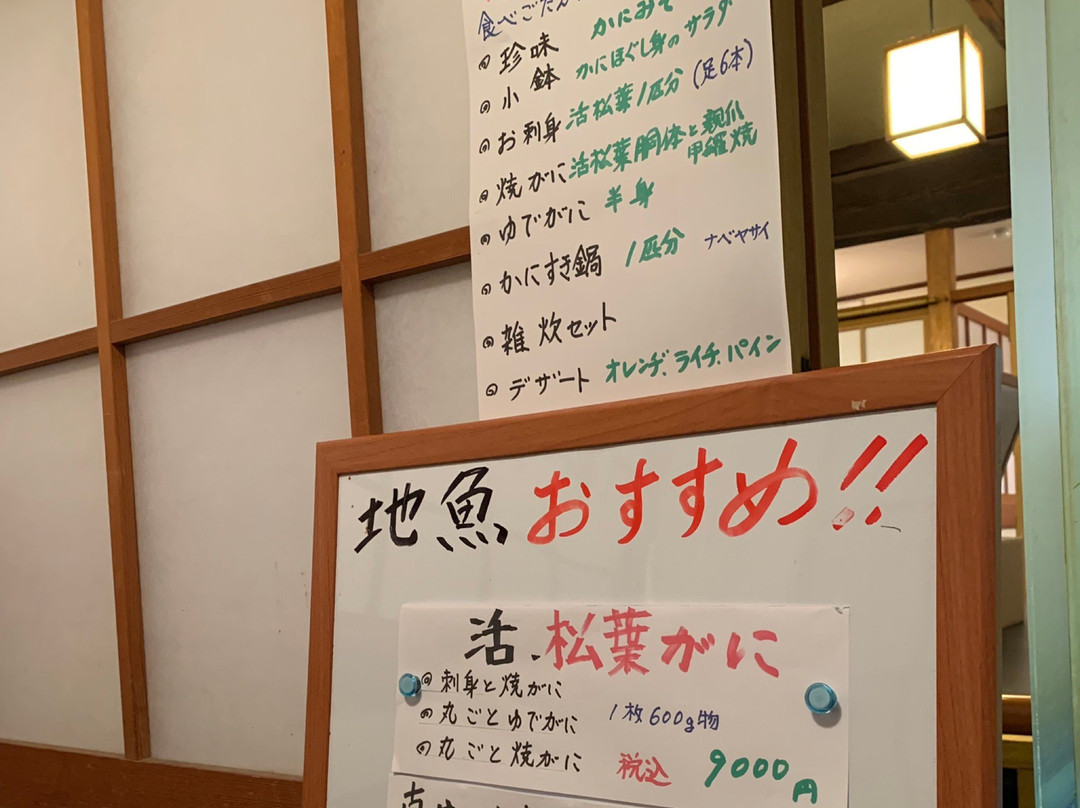 食べごたえ
◎ 珍味 かにみそ
◎ 小鉢 かにほぐし身のサラダ
◎ お刺身 活松葉1匹分(足6本)
◎ 焼がに 活松葉胴体と親爪
甲羅焼
◎ ゆでがに 半身
◎ かにすき鍋 1匹分 ナベヤサイ
◎ 雑炊セット
◎ デザート オレンヂ、ライチ、パイン
地魚おすすめ!!
活.松葉がに
◎ 刺身と焼がに
◎ 丸ごとゆでがに 1枚600g物
◎ 丸ごと焼がに 税込 9000円